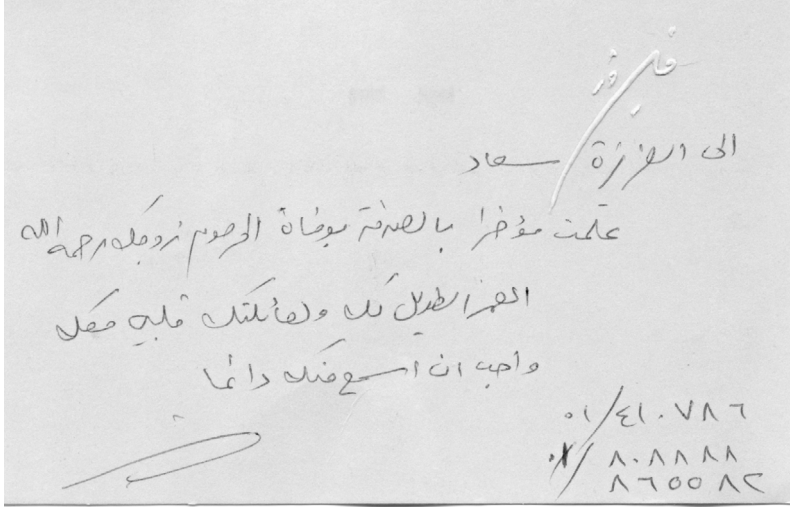 فيروز
الى العزيزة سعاد
علمت مؤخرا بالصدفة بوفاة المرحوم زوجك رحمه الله
العمر الطويل لك ولعائلتك قلبي معك
واحب ان اسمع منك دائما
٠١/٤١٠٧٨٦
٠١/٨٠٨٨٨٨
٨٦٥٥٨٢